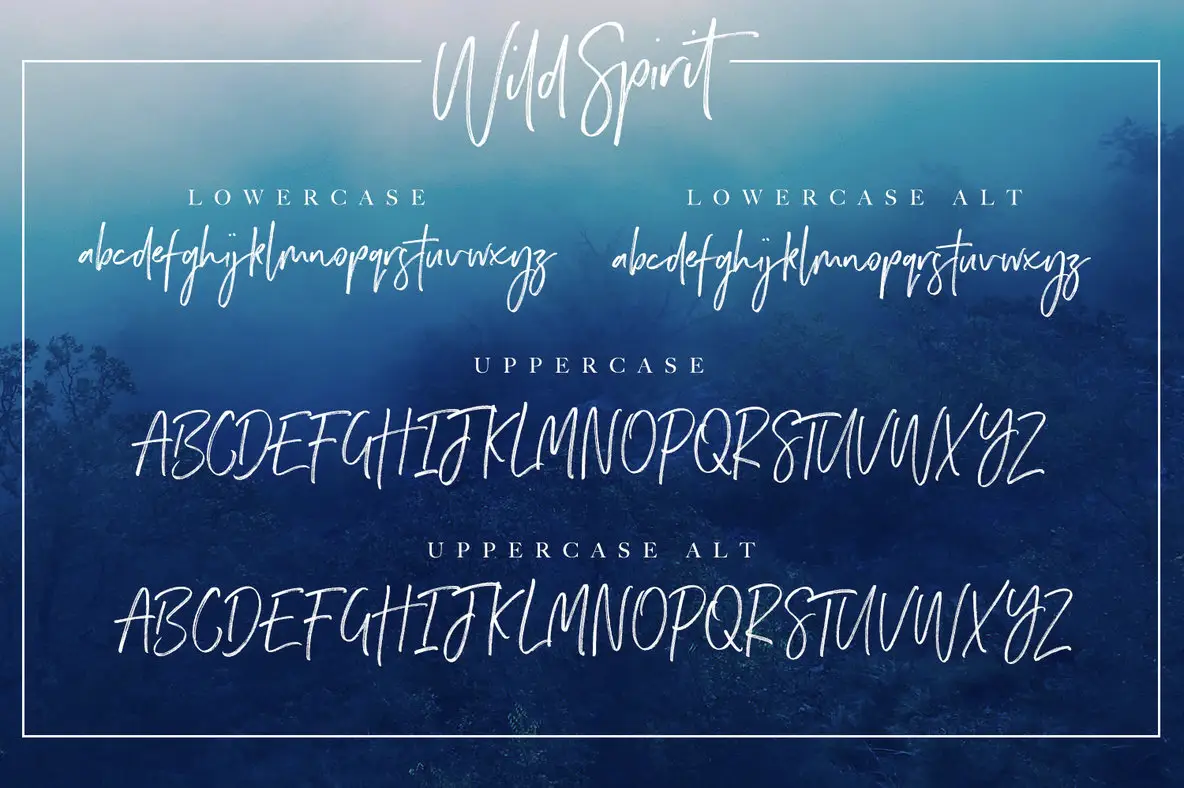 Wild Spirit
LOWERCASE
abcdefghijklmnopqrstuvwxyz
LOWERCASE ALT
abcdefghijklmnopqrstuvwxyz
UPPERCASE
ABCDEFGHIJKLMNOPQRSTUVWXYZ
UPPERCASE ALT
ABCDEFGHIJKLMNOPQRSTUVWXYZ